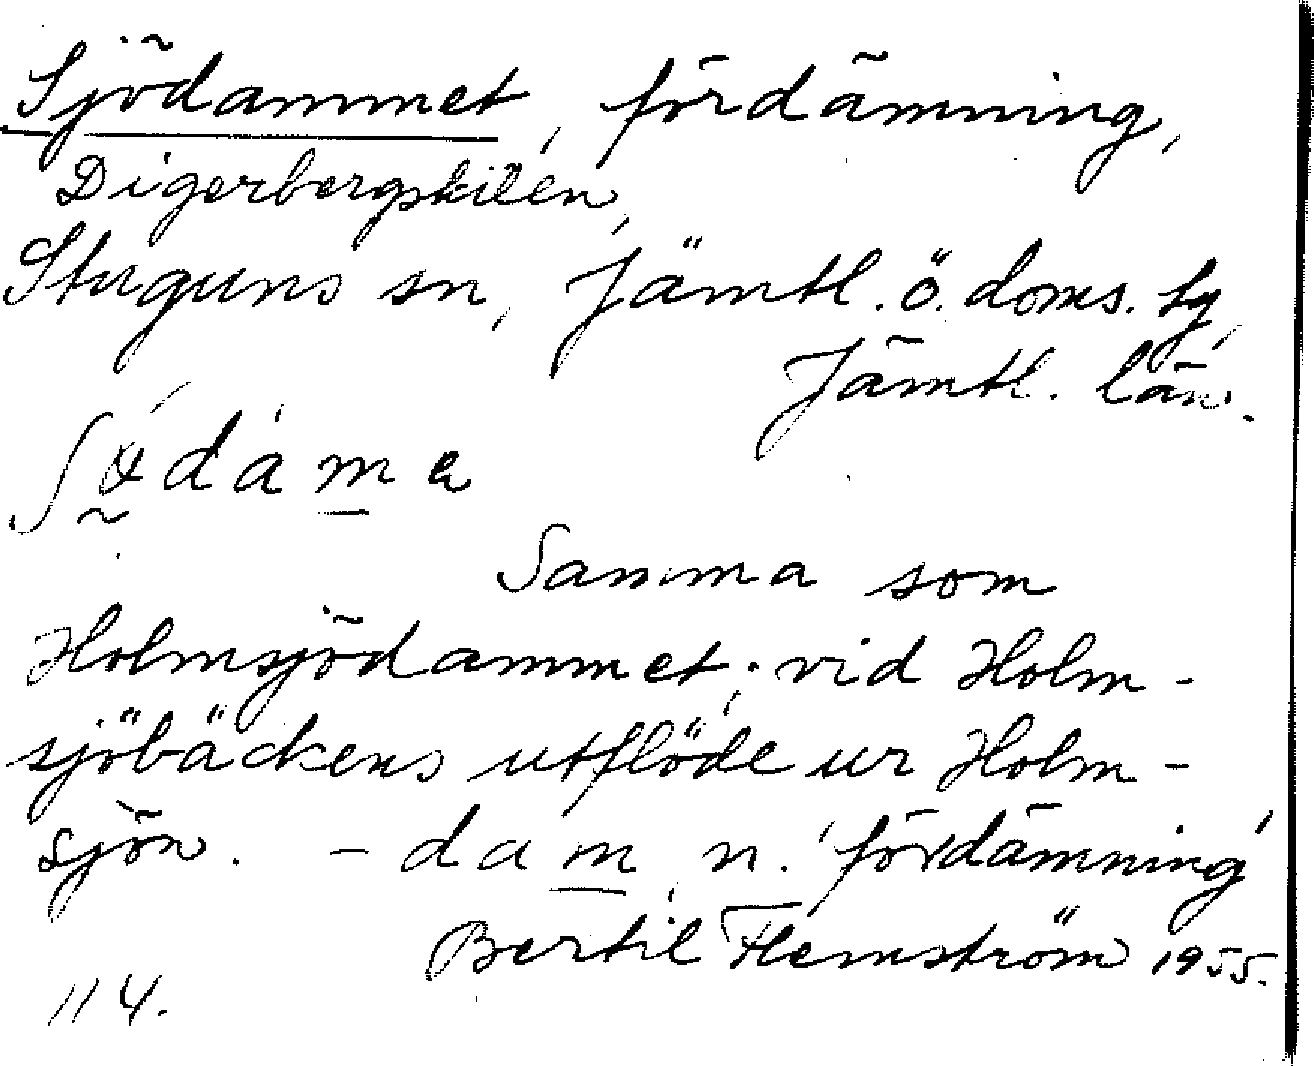 Sjödammet, fördämning,
Digerbergskilen,
Stuguns sn, Jämtl. ö. doms. sg,
Jämtl. län.
Samma som
Holmsjödammet; vid Holm-
sjöbäckens utflöde ur Holm-
sjön. - dam, n. 'fördämning'
Bertil Flemström 1955.
114.